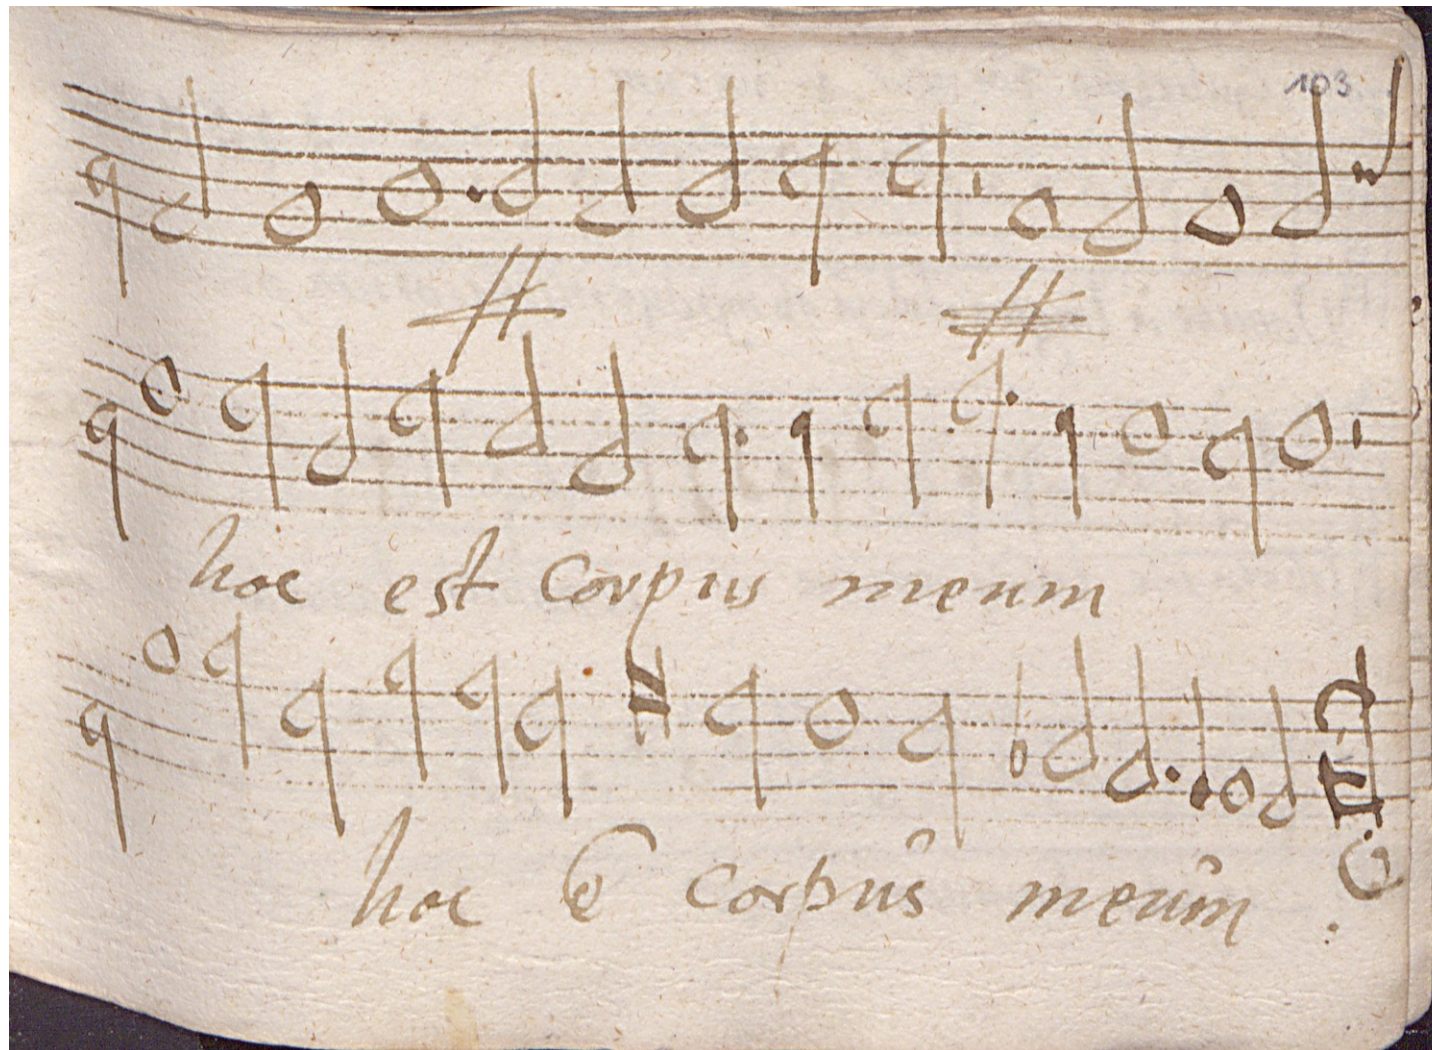 103
hoc est Corpus meum
hoc ē corpus meum